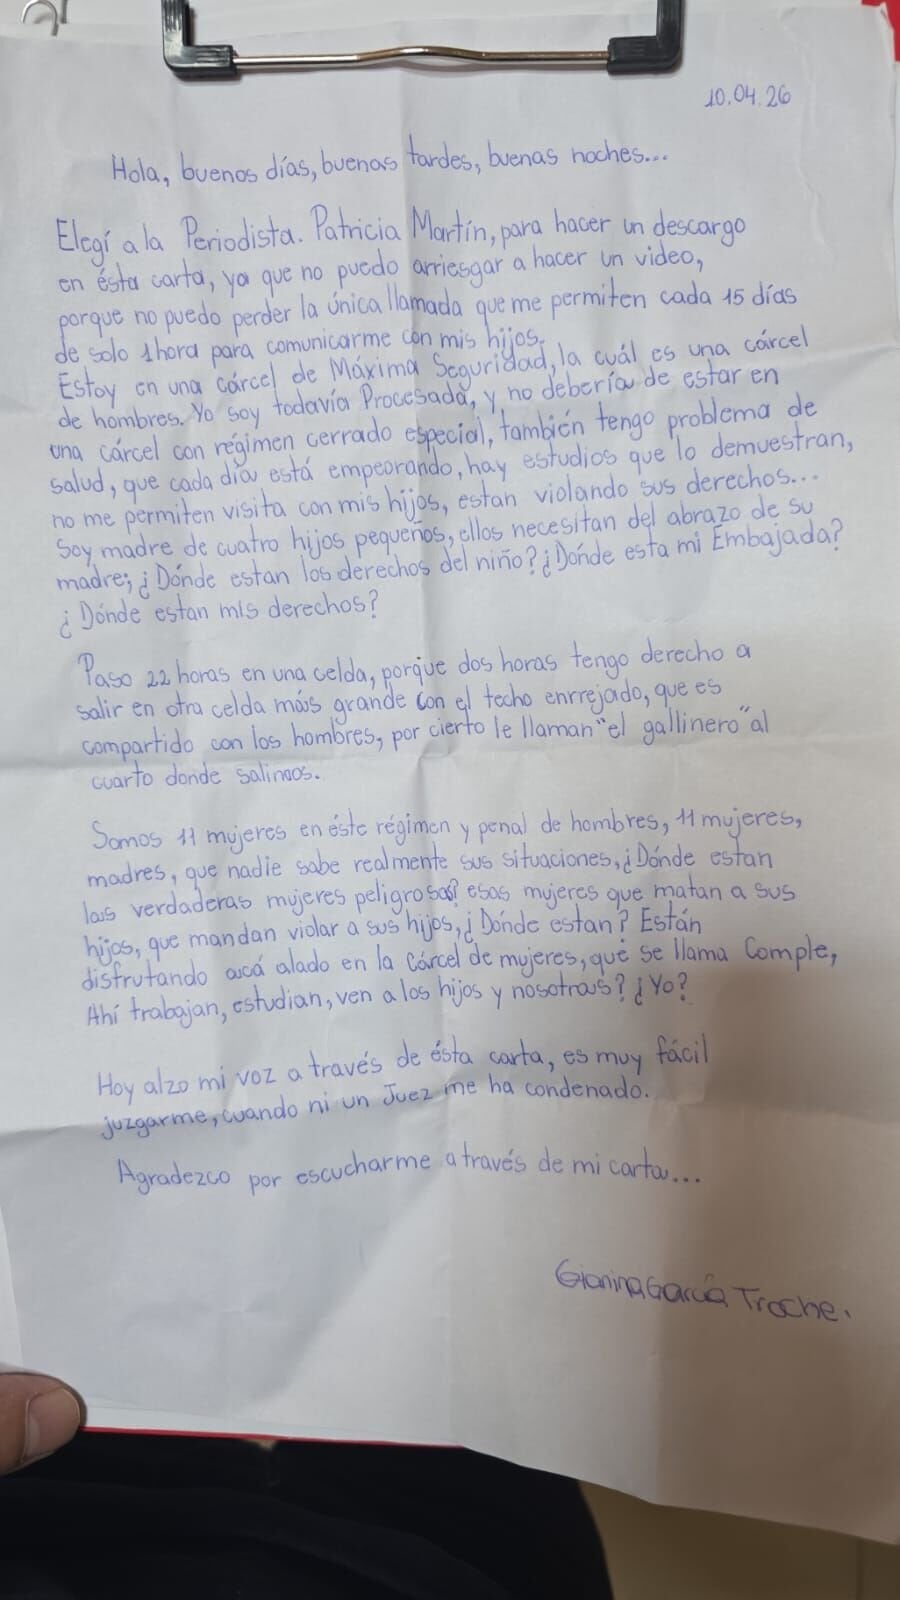 10.04.26
Hola, buenos días, buenas tardes, buenas noches...
Elegí a la Periodista. Patricia Martín, para hacer un descargo
en ésta carta, ya que no puedo arriesgar a hacer un video,
porque no puedo perder la única llamada que me permiten cada 15 días
de solo 1hora para comunicarme con mis hijos.
Estoy en una cárcel de Máxima Seguridad, la cuál es una cárcel
de hombres. Yo soy todavía Procesada, y no debería de estar en
una cárcel con régimen cerrado especial, también tengo problema de
salud, que cada día está empeorando, hay estudios que lo demuestran,
no me permiten visita con mis hijos, estan violando sus derechos...
Soy madre de cuatro hijos pequeños, ellos necesitan del abrazo de su
madre; ¿Dónde estan los derechos del niño? ¿Dónde esta mi Embajada?
¿Dónde estan mis derechos?
Paso 22 horas en una celda, porque dos horas tengo derecho a
salir en otra celda más grande con el techo enrrejado, que es
compartido con los hombres, por cierto le llaman "el gallinero" al
cuarto donde salimos.
Somos 11 mujeres en éste régimen y penal de hombres, 11 mujeres,
madres, que nadie sabe realmente sus situaciones, ¿Dónde estan
las verdaderas mujeres peligrosas? esas mujeres que matan a sus
hijos, que mandan violar a sus hijos, ¿Dónde estan? Están
disfrutando acá alado en la Cárcel de mujeres, qué se llama Comple,
Ahí trabajan, estudian, ven a los hijos y nosotras? ¿Yo?
Hoy alzo mi voz a través de ésta carta, es muy fácil
juzgarme, cuando ni un Juez me ha condenado.
Agradezco por escucharme a través de mi carta...
Gianina García Troche.